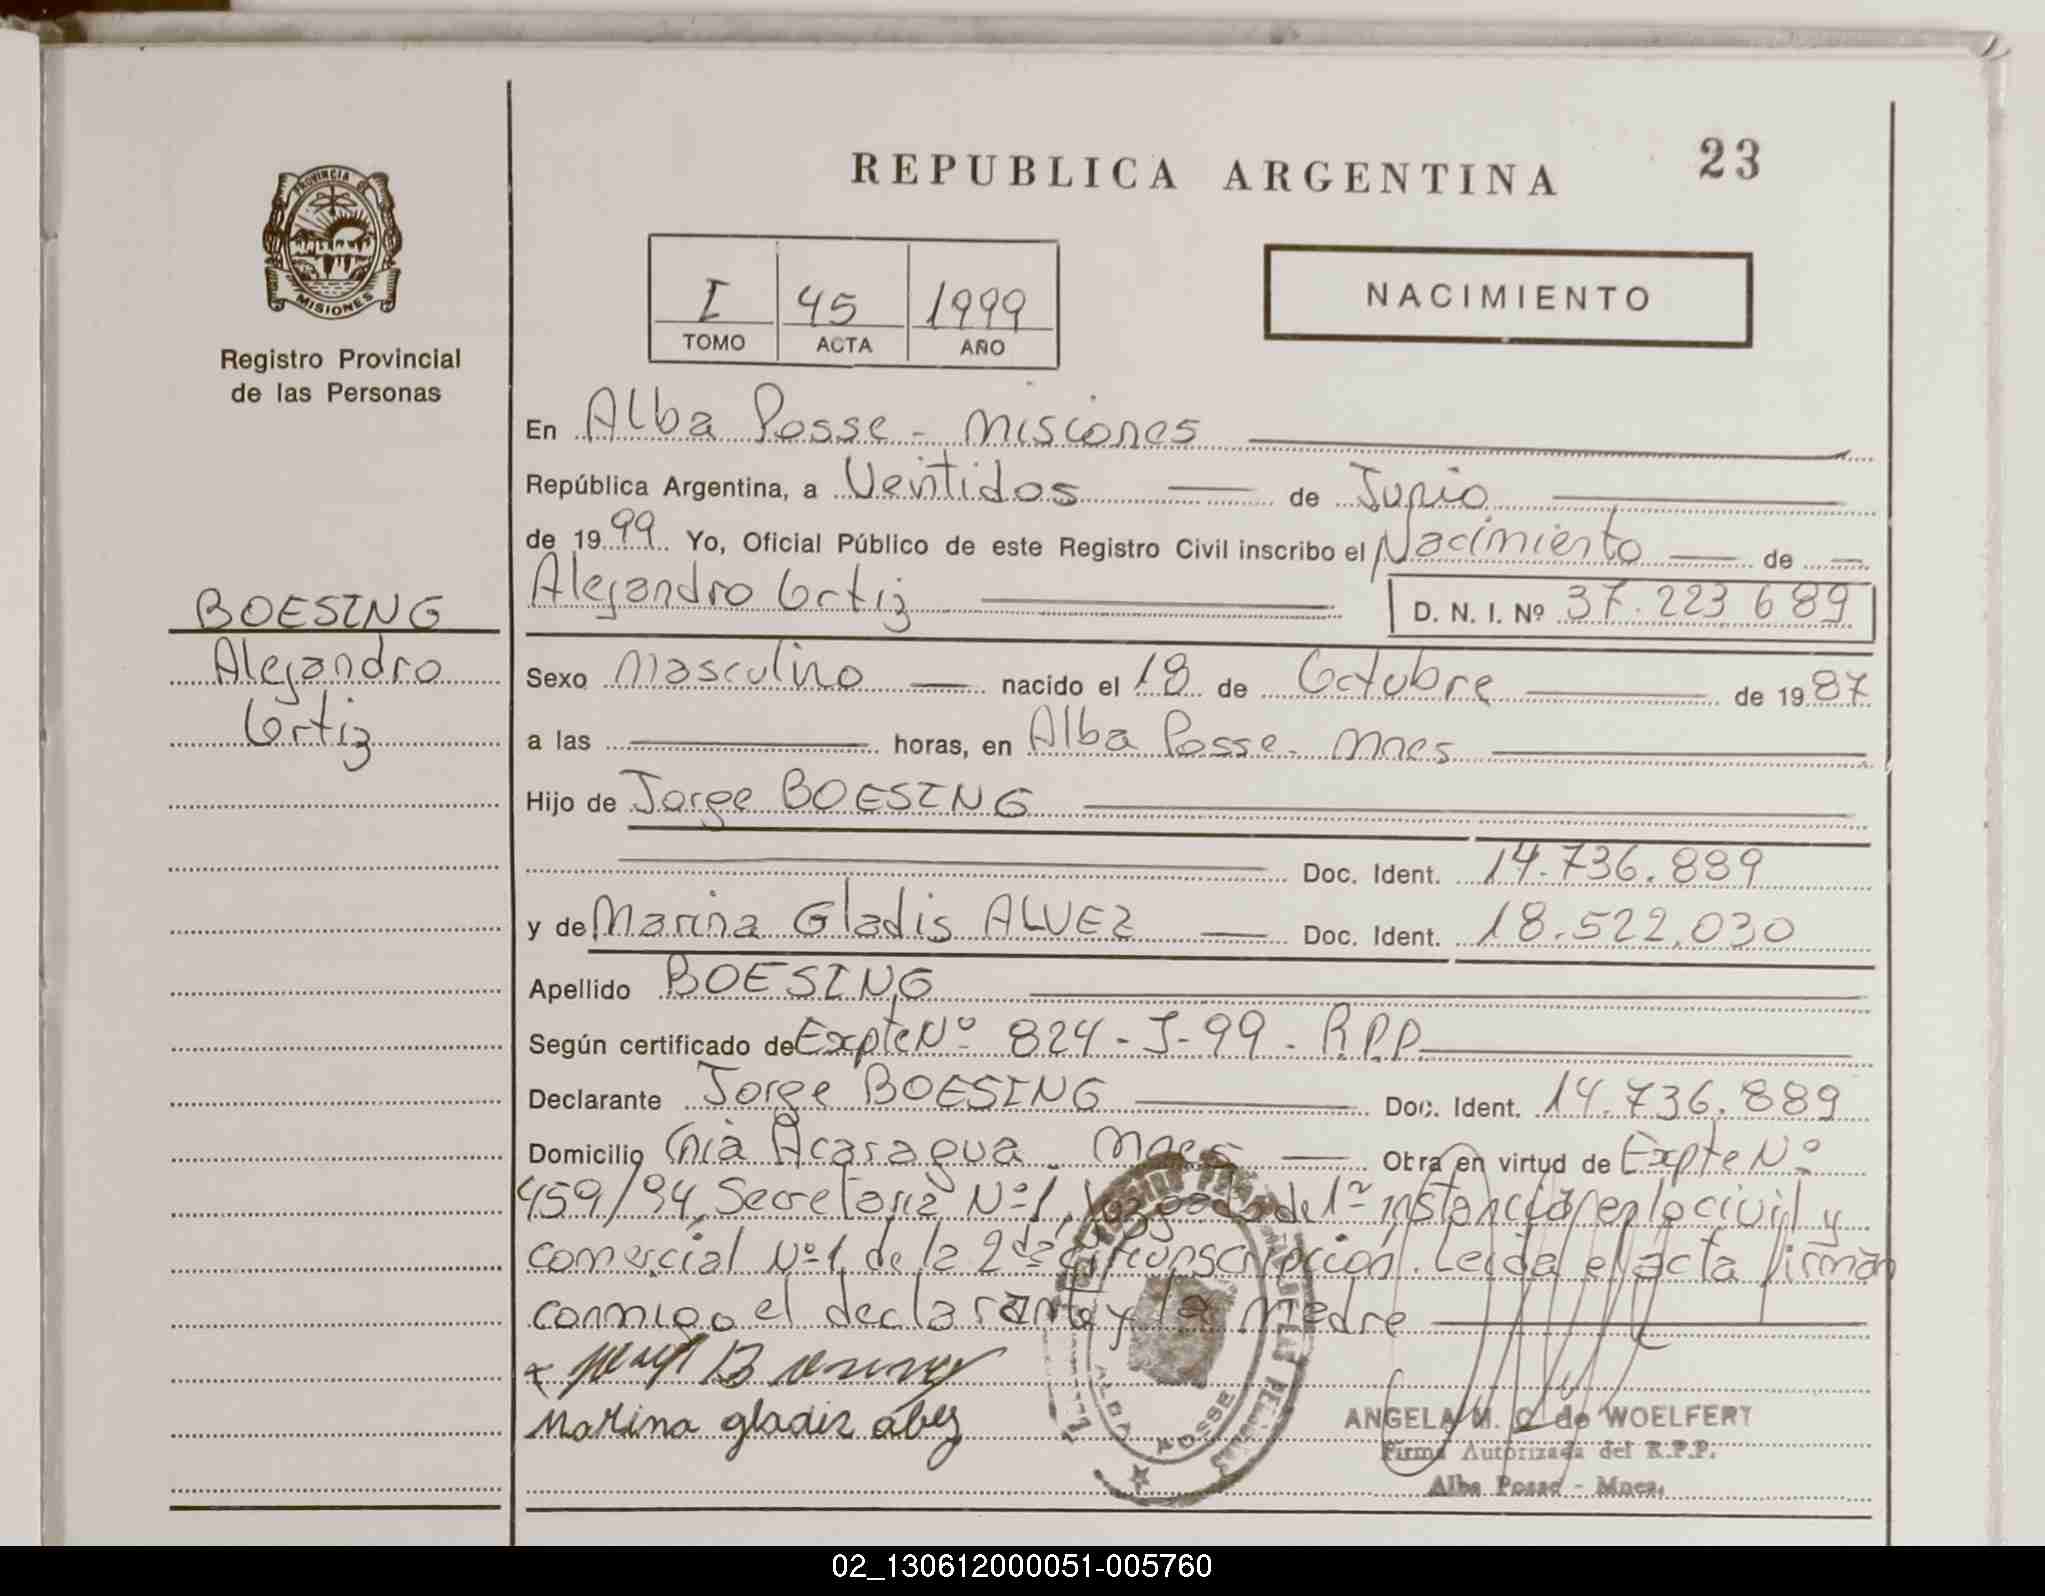 REPUBLICA ARGENTINA
23
PROVINCIA DE
MISIONES
Registro Provincial
de las Personas
I 45 1999
TOMO ACTA AÑO
NACIMIENTO
En Alba Posse - Misiones
República Argentina, a Veintidos de Junio
de 1999 Yo, Oficial Público de este Registro Civil inscribo el Nacimiento de
Alejandro Ortiz D. N. I. Nº 37.223 689
BOESING
Alejandro
Ortiz
Sexo Masculino nacido el 18 de Octubre de 1987
a las horas, en Alba Posse - Mnes
Hijo de Jorge BOESING
Doc. Ident. 14.736.889
y de Marina Gladis ALVEZ Doc. Ident. 18.522.030
Apellido BOESING
Según certificado de Expte Nº 824 - J - 99 - R.P.P
Declarante Jorge BOESING Doc. Ident. 14.736.889
Domicilio Cnia Acaragua - Mnes Otra en virtud de Expte Nº
459/94, Secretaria Nº 1, Juzgado de 1ª instancia en lo civil y
comercial Nº 1 de la 2da circunscripción. Leida el acta firman
conmigo el declarante y la madre
Marina gladiz abez
ALBA POSSE
ANGELA M. C. de WOELFERT
Firma Autorizada del R.P.P.
Alba Posse - Mnes.
02_130612000051-005760